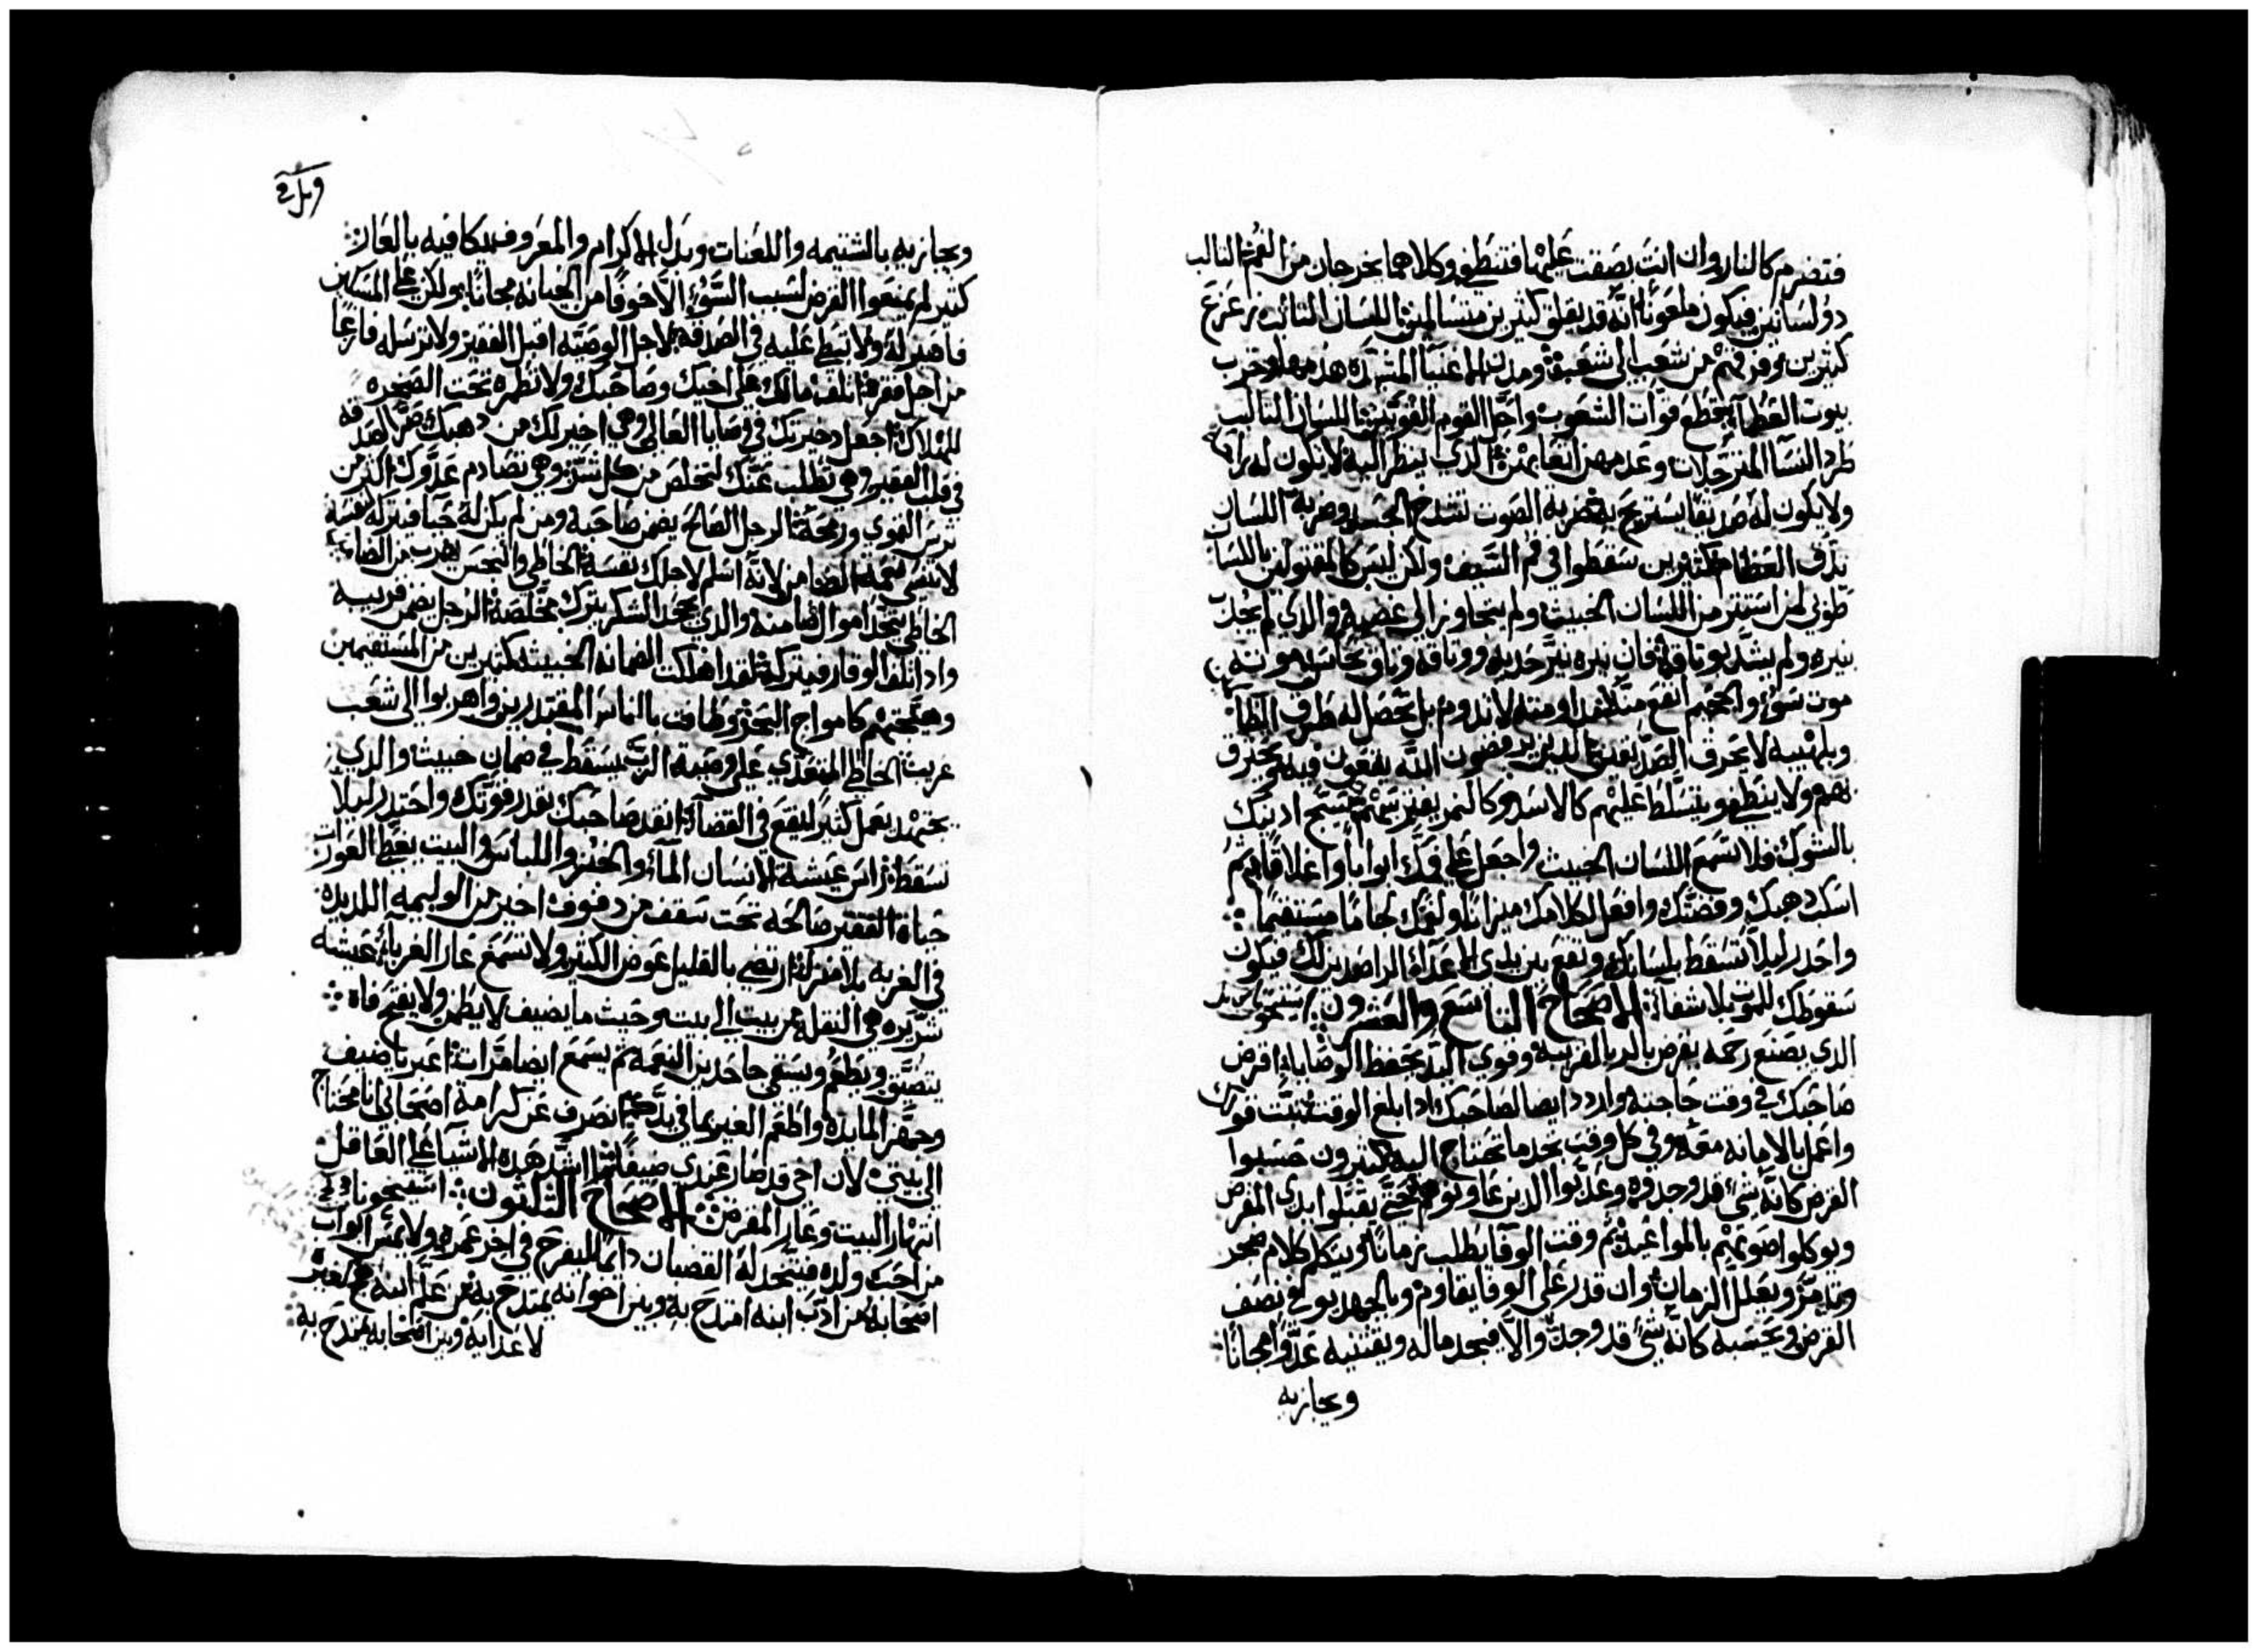 فتضرم كالنار وان انت بصقت عليها فتنطفي وكلاهما يخرجان من الفم الثالب
ذو لسانين فيكون ملعونًا انه قد يقلق كثيرين متسالمين اللسان الثالث زعزع
كثيرين وفرقهم من شعب الى شعب ومدن الاغنيا المشيده هدمها واخرب
بيوت العظما قطع قوات الشعوب واحل القوم القويين اللسان الثالب
طرد النسا المترجلات وعدمهن اتعابهن الذي ينظر اليه لا يكون له راحه
ولا يكون له صديقا يستريح به ضربة الصوت تشدخ الجسد وضربة اللسان
تدق العظام كثيرين سقطوا في فم السيف ولكن ليس كالمقتولين باللسان
طوبى لمن استتر من اللسان الخبيث ولم يتجاوز الى غضبه والذي لم يجذب
نيره ولم يشد بوثاقه فان نيره نير حديد ووثاقه وثاق نحاس موته
موت سوء والجحيم انفع منه لا تدوم بل تحصل له طرق الظالمين
وبلهيبه لا يحرق الصديقين الذين يرفضون الله يقعون فيه فيحترق
بهم ولا ينطفي ويتسلط عليهم كالاسد وكالنمر يفترسهم سيج ادنيك
بالشوك ولا تسمع اللسان الخبيث واجعل على فمك ابوابًا واغلاقًا
اسكب دهبك وفضتك وافعل لكلامك ميزانًا ولفمك لجامًا مستقيمًا
واحدر ليلا تسقط بلسانك وتقع بين يدي الاعداء الراصدين لك فيكون
سقوطك للموت بلا شفاء الاصحاح التاسع والعشرون
الذي يصنع رحمه يقرض بالربا لقريبه وقوي اليد يحفظ الوصايا اقرض
صاحبك في وقت حاجته واردد ايضا لصاحبك ادا بلغ الوقت ثبت قولك
واعمل بالامانه معه وفي كل وقت تجد ما تحتاج اليه كثيرون حسبوا
القرض كانه شي قد وجدوه وعذبوا الدين عاونوهم حتى يقبلوا يدي المقرض
ويوكلوا صوتهم بالمواعيد ثم وقت الوفا يطلب زمانًا ويتكلم كلام ضجر
وتدمر ويعلل الزمان وان قدر على الوفا يقاوم وبالجهد يوفي نصف
القرض ويحسبه كانه شي قد وجد والا فيجحد ماله ويقتنيه عدوًا مجانًا
ويجازيه
ويجازيه بالشتيمه واللعنات وبدل الاكرام والمعروف يكافيه بالعار
كثير لم يمنعوا القرض لسبب السوء الا خوفًا من الخيانه مجانًا ولكن على المساكين
فاصبر له ولا تبط عليه في الصدقه لاجل الوصيه اقبل الفقير ولا ترسله فارغًا
من اجل فقره اتلف مالك على اخيك وصاحبك ولا تطمره تحت الصخره
للهلاك اجعل دخيرتك في وصايا العالي وهي اخير لك من دهبك صر الصدقه
في قلب الفقير وهي تطلب عنك لتخلص من كل شر وهي تصادم عدوك اكثر من
ترس القوي ورمحه الرجل الصالح يضمن صاحبه ومن لم يكن له حيا فيتركه لنفسه
لا تنسى نعمة الضامن لانه اسلم لاجلك نفسه الخاطي والنجس يهرب من الضامن
الخاطي يتخد اموال ضامنه والذي يجحد الشكر يترك مخلصه الرجل يضمن قريبه
وادا تلف الوقار فيتركه لقد اهلكت الضمانه الخبيثه كثيرين من المستقيمين
وهيجتهم كامواج البحر وطافت بالناس المقتدرين واهربوا الى شعب
غريب الخاطي المتعدي على وصية الرب يسقط في ضمان خبيث والذي
يجتهد يعمل كثير ليقع في القضا انقد صاحبك بقدر قوتك واحتدر ليلا
تسقط راس عيشة الانسان الماء والخبز واللباس والبيت يغطي العورات
حياة الفقير صالحه تحت سقف من دفوف اخير من الوليمه اللديده
في الغربه بلا منزل ارتضي بالقليل عوض الكثير ولا تسمع عار الغربا عيشه
شريره هي النقله من بيت الى بيت وحيث ما يضيف لا يطمن ولا يفتح فاه
يتضيق ويطعم ويسقي جاحدين النعمه ثم يسمع ايضا مرات اعبر يا ضيف
وجهز المايده واطعم الغير بما في يدك انصرف عن كرامة اصحابي انا محتاج
الى بيتي لان اخي قد صار عندي ضيفًا ما اشد هده الاشيا على العاقل
انتهار البيت وعار المقرض الاصحاح الثلثون
من احب ولده فيتخد له القضبان دايمًا ليفرح في اخر عمره ولا يمس ابواب
اصحابه من ادب ابنه امتدح به وبين اخوانه يمتدح به من علم ابنه
لاعدايه وبين اصحابه يمتدح به